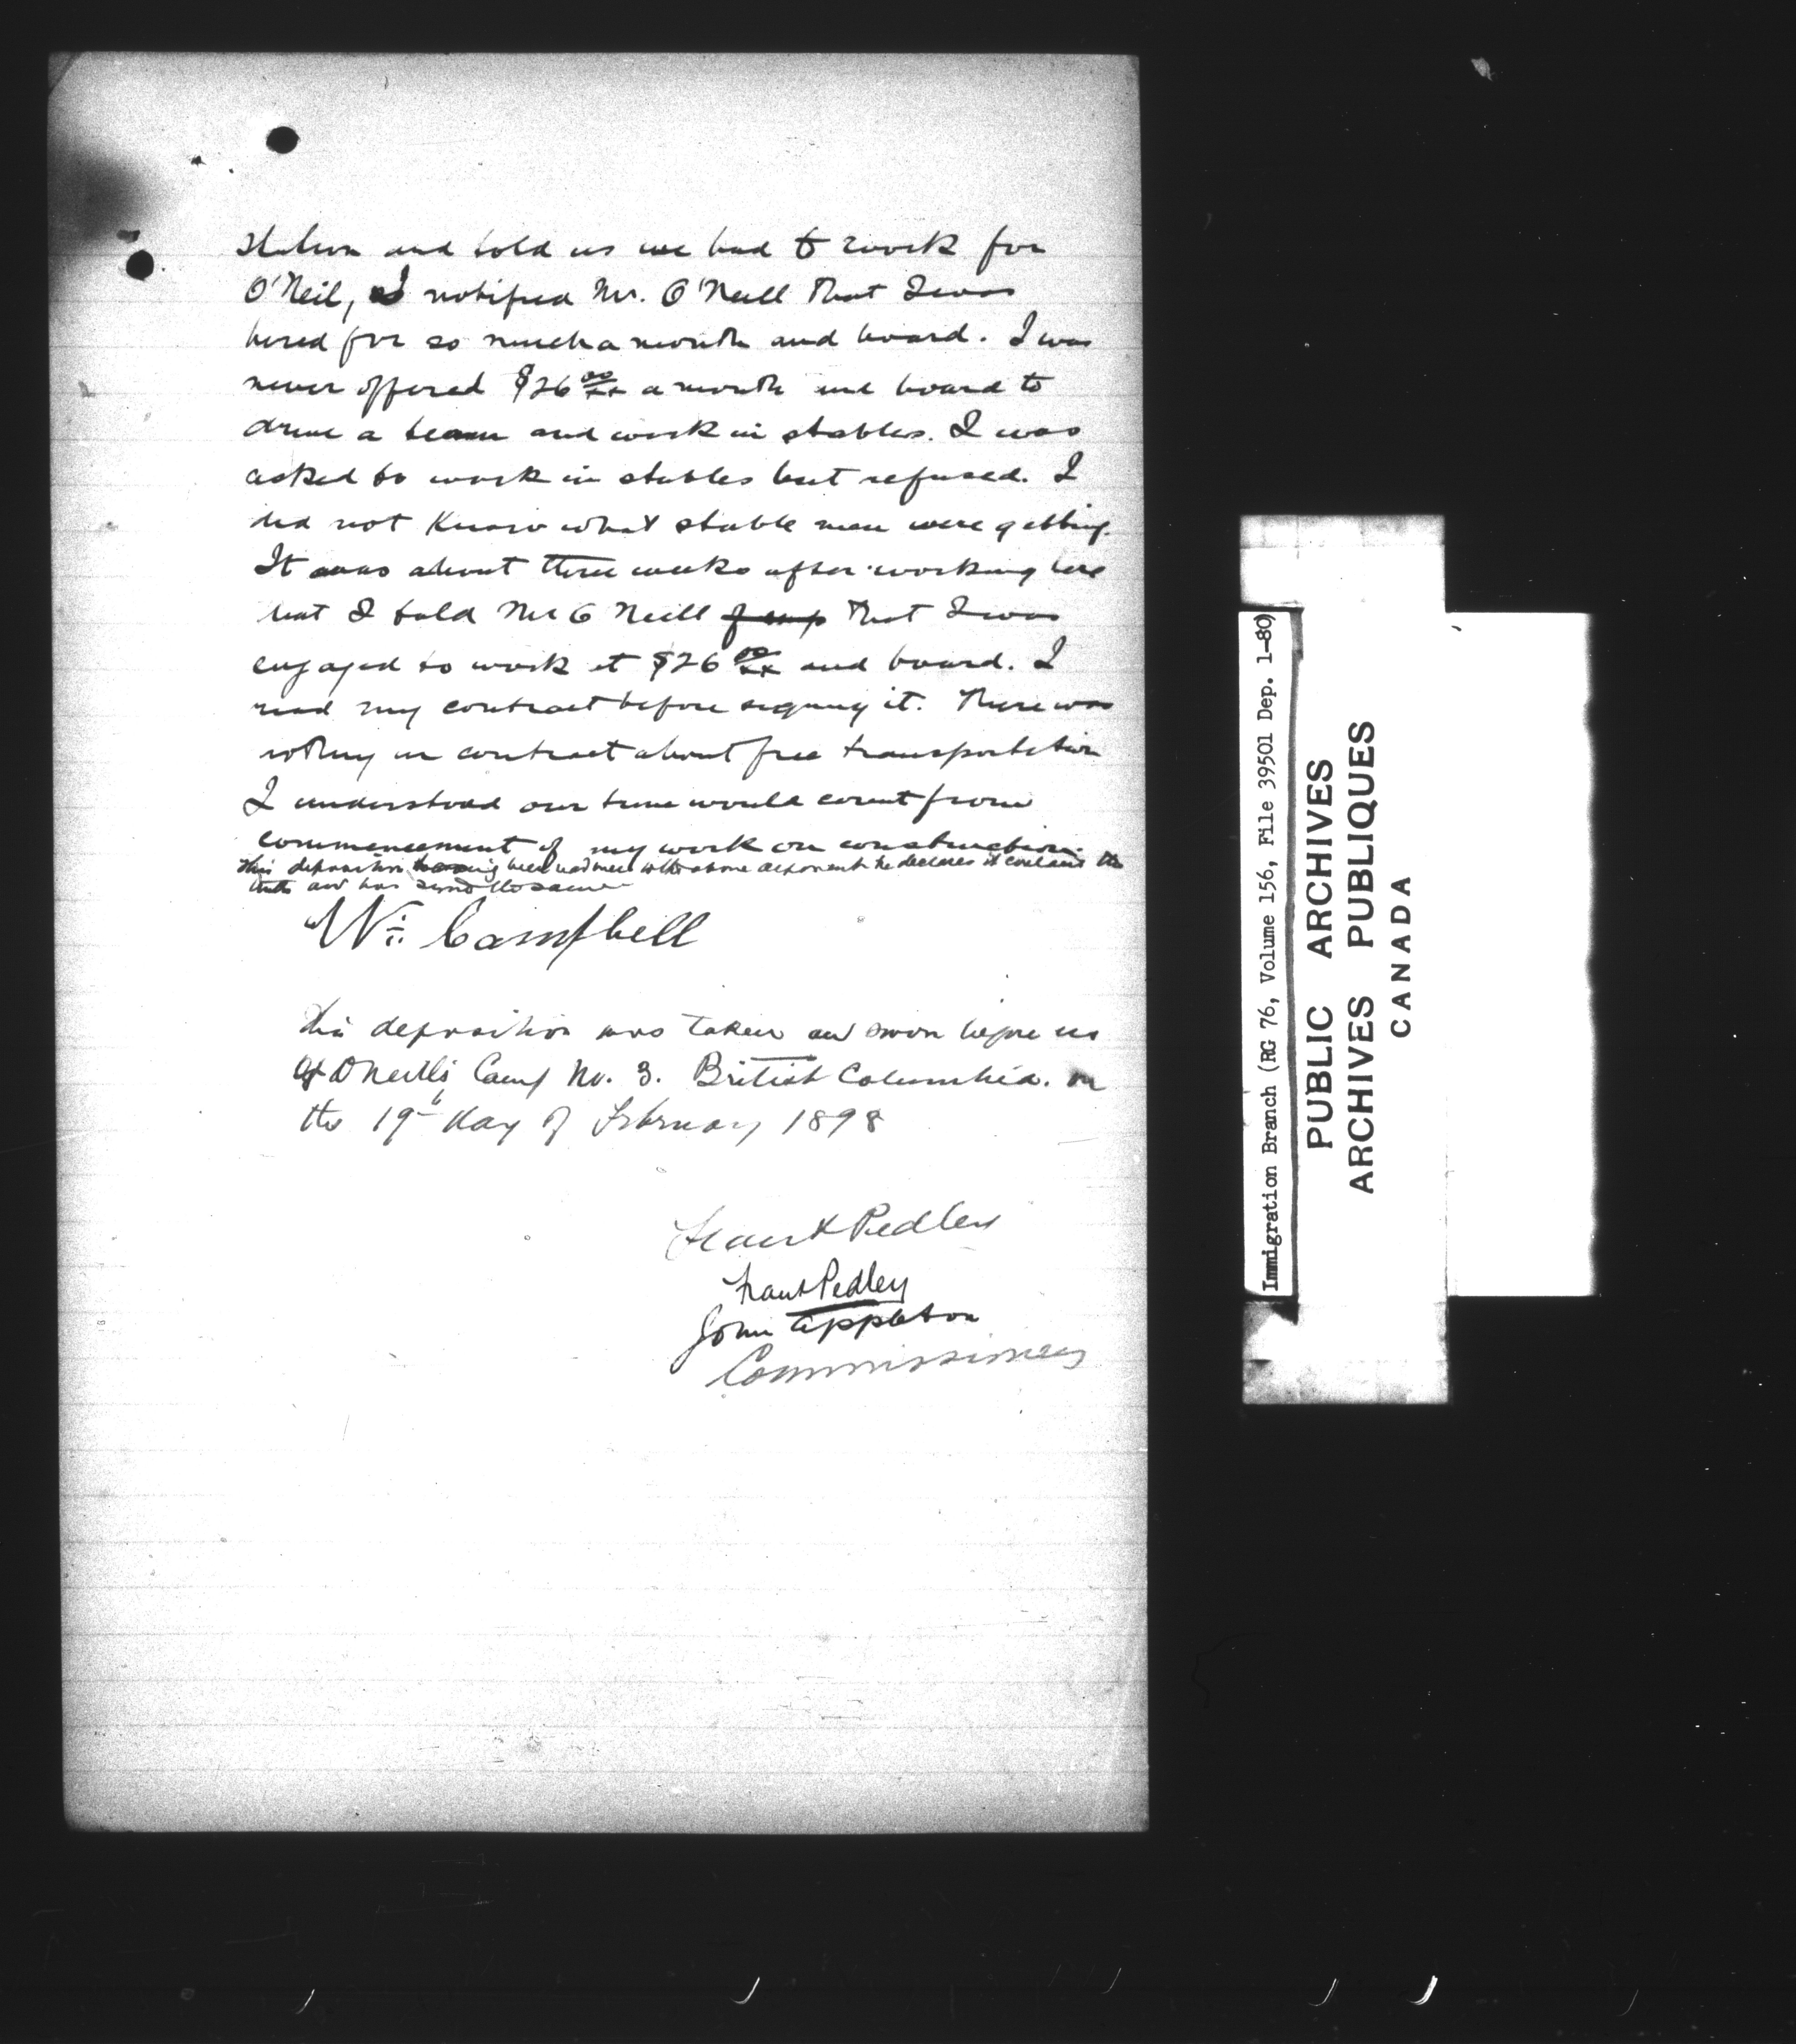 station and told us we had to work for
O'Neil, I notified Mr. O'Neill that I was
hired for so much a month and board. I was
never offered $26 00/xx a month and board to
drive a team and work in stables. I was
asked to work in stables but refused. I
did not know what stable men were getting.
It was about three weeks after working here
that I told Mr O Neill that I was
engaged to work at $26 00/xx and board. I
read my contract before signing it. There was
nothing in contract about free transportation
I understood our time would count from
commencement of my work on construction.
This deposition having been read over to the above deponent he declares it contains the
truth and has signed the same
Wm. Campbell
This deposition was taken and sworn before us
at O'Neill's Camp No. 3. British Columbia. on
the 19th day of February 1898
Frank Pedley
Frank Pedley
John Appleton
Commissioners
Immigration Branch (RG 76, Volume 156, File 39501 Dep. 1-80)
PUBLIC ARCHIVES
ARCHIVES PUBLIQUES
CANADA